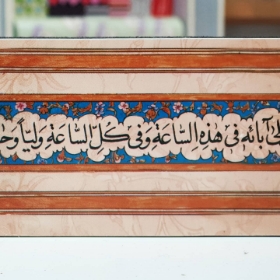 آبائِهِ في هذِهِ السّاعَةِ وَفي كُلِّ السّاعَةِ وَلِيّاً وَحا